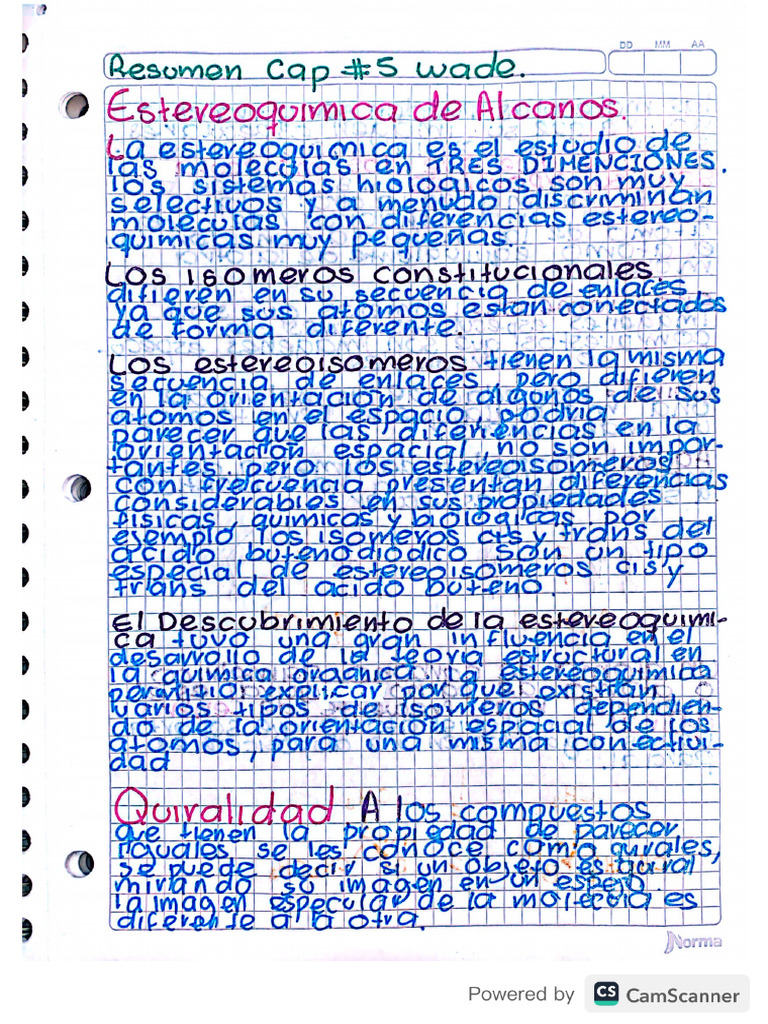 DD MM AA
Resumen Cap #5 wade.
Estereoquimica de Alcanos.
La estereoquimica es el estudio de
las moleculas en TRES DIMENCIONES.
los sistemas biologicos son muy
selectivos y a menudo discriminan
moleculas con diferencias estereo-
quimicas muy pequeñas.
Los isomeros constitucionales
difieren en su secuencia de enlaces,
ya que sus atomos estan conectados
de forma diferente.
Los estereoisomeros tienen la misma
secuencia de enlaces, pero difieren
en la orientación de algunos de sus
atomos en el espacio, podria
parecer que las diferencias en la
orientación espacial, no son impor-
tantes, pero los estereoisomeros
con frecuencia presentan diferencias
considerables en sus propiedades
fisicas, quimicas y biologicas, por
ejemplo los isomeros cis y trans del
acido butenodiódico son un tipo
especial de estereoisomeros cis y
trans del acido buteno.
El Descubrimiento de la estereoquimi-
ca tuvo una gran influencia en el
desarrollo de la teoria estructural en
la quimica organica. la estereoquimica
permitio explicar por que existian
varios tipos de isomeros dependien-
do de la orientación espacial de los
atomos, para una misma conectivi-
dad
Quiralidad A los compuestos
que tienen la propiedad de parecer
iguales se les conoce como quirales,
se puede decir si un objeto es quiral
mirando su imagen en un espejo.
la imagen especular de la molecula es
diferente a la otra.
Norma
Powered by CS CamScanner